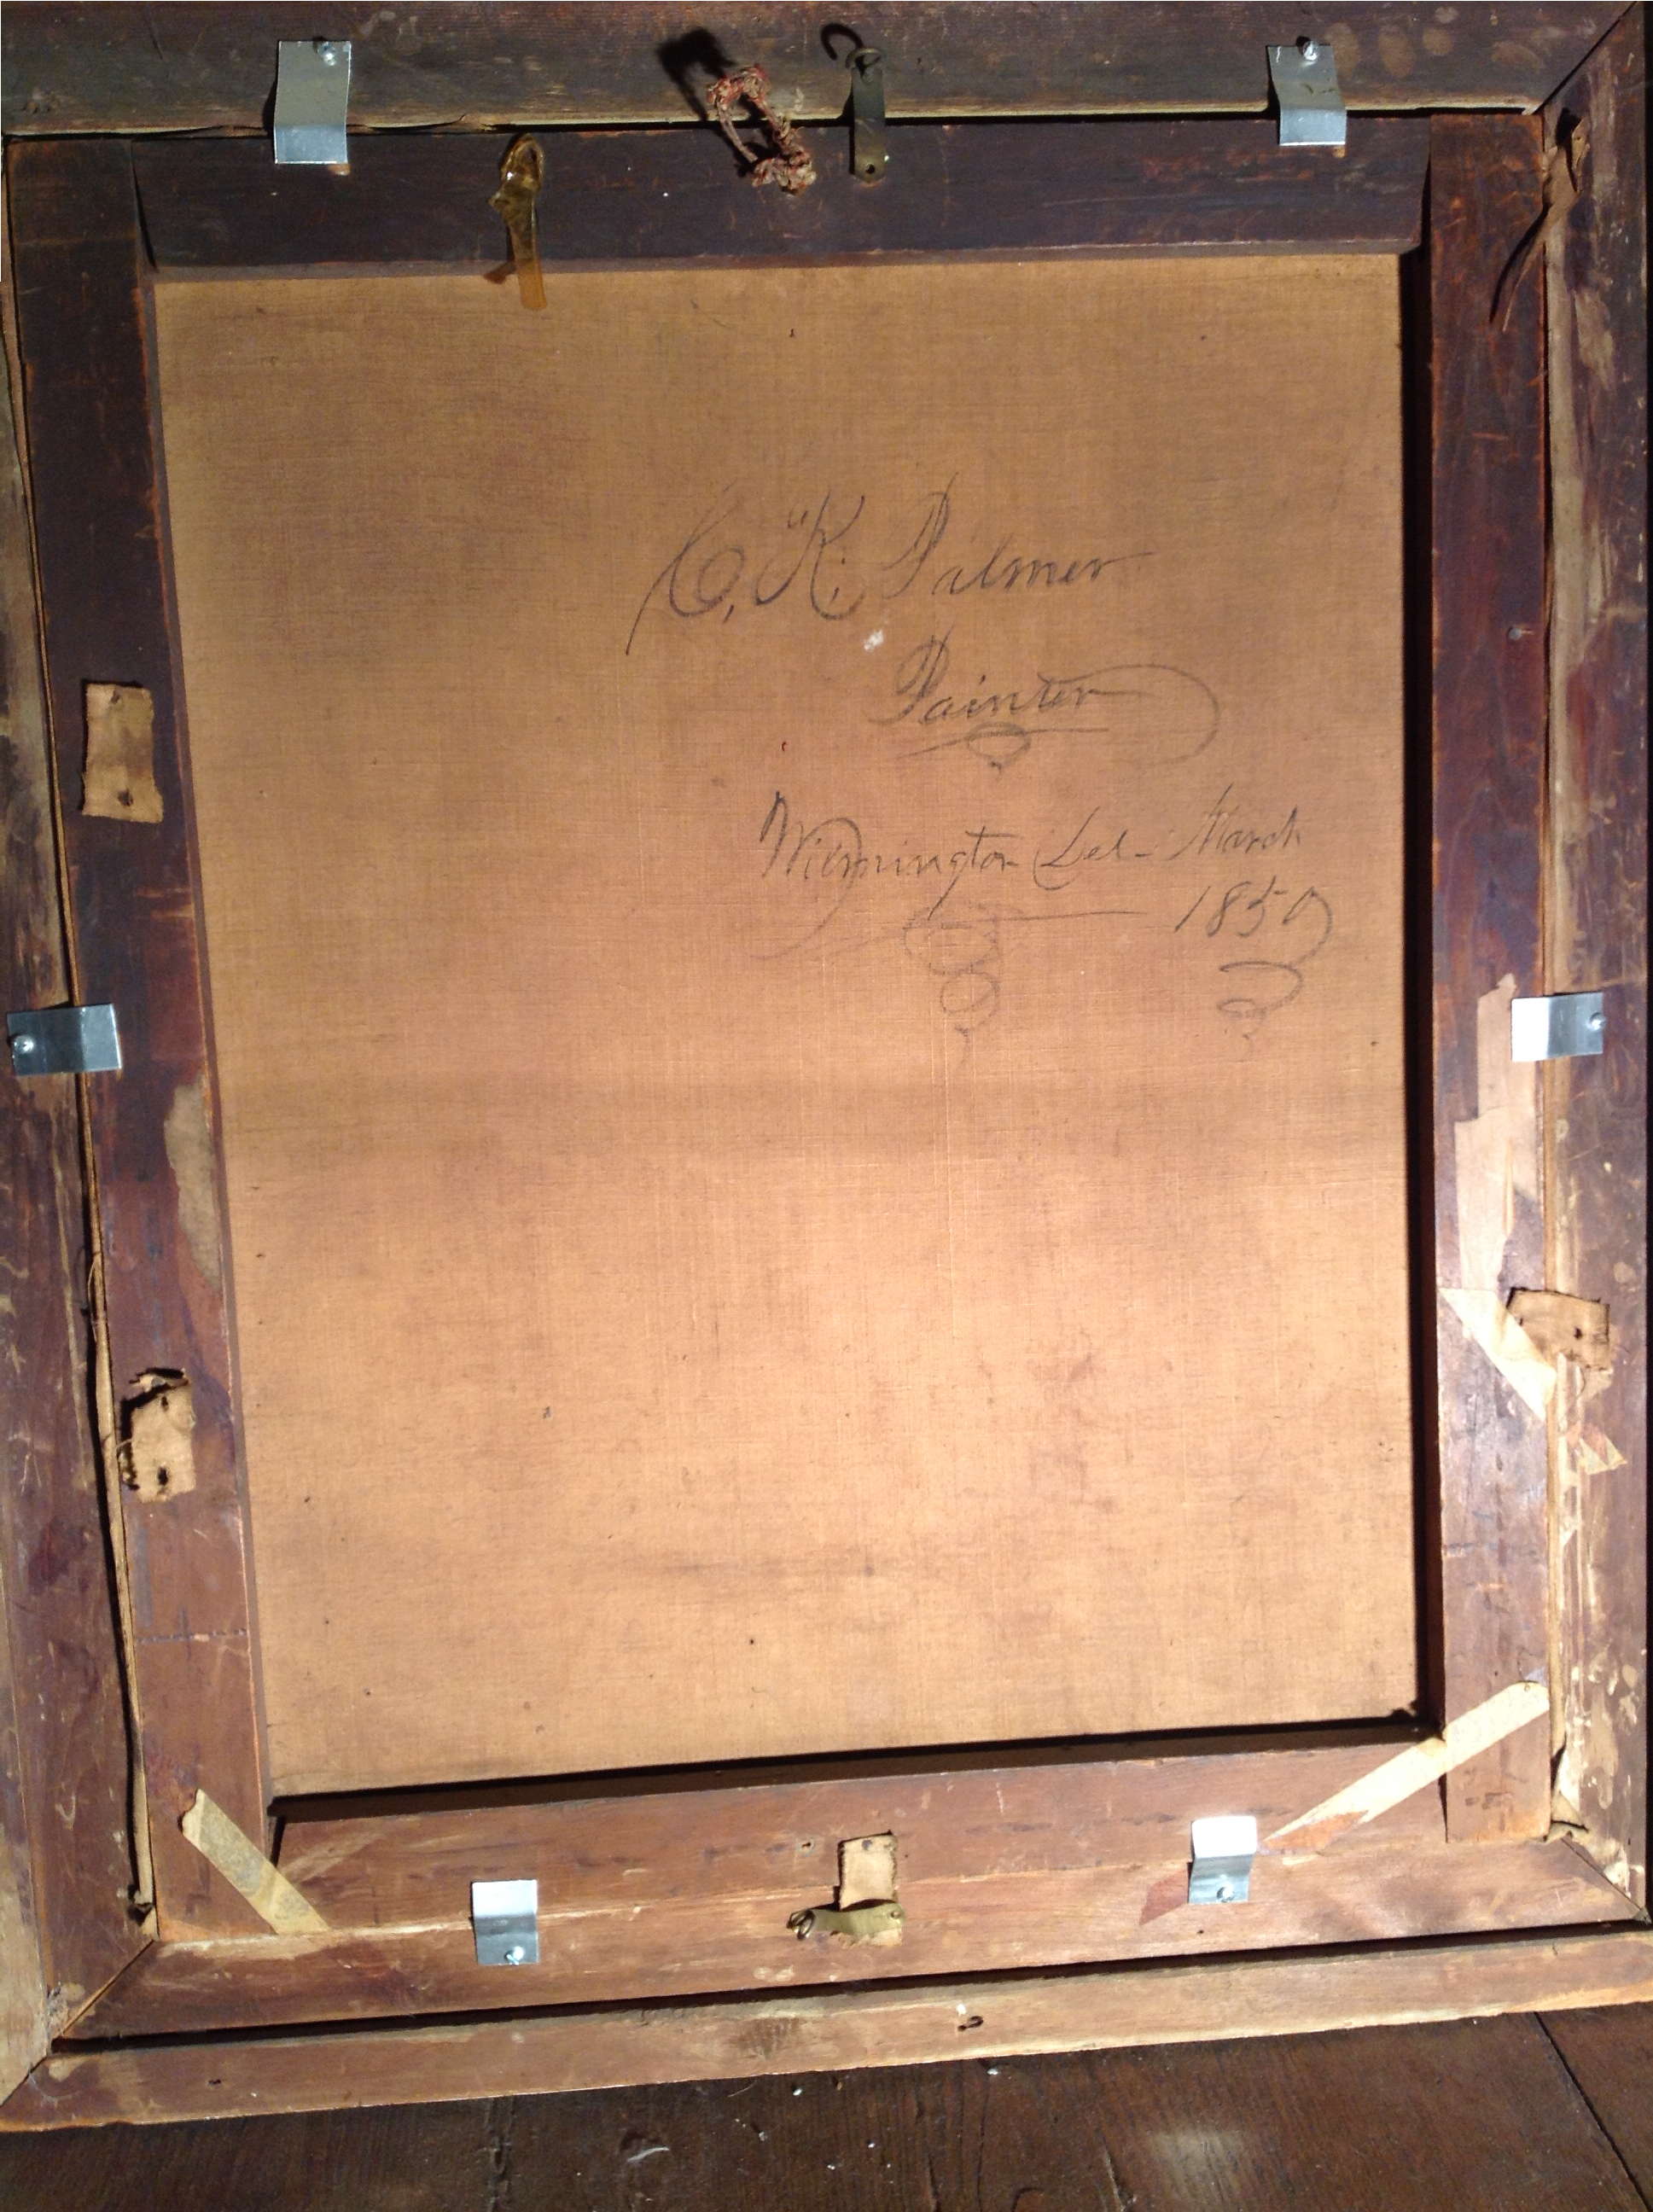 C. K. Palmer
Painter
Wilmington Del - March
1850